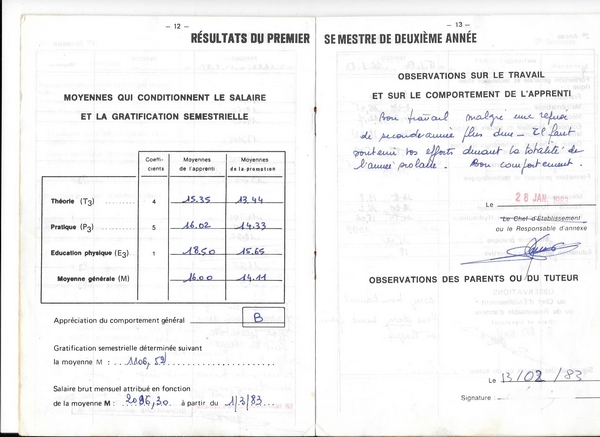 — 12 —
RÉSULTATS DU PREMIER
MOYENNES QUI CONDITIONNENT LE SALAIRE
ET LA GRATIFICATION SEMESTRIELLE
Coeffi-cients Moyennes de l'apprenti Moyennes de la promotion
Théorie (T3) .......... 4 15.35 13.44
Pratique (P3) .......... 5 16.02 14.33
Education physique (E3) .. 1 18.50 15.65
Moyenne générale (M) 16.00 14.11
Appréciation du comportement général B
Gratification semestrielle déterminée suivant
la moyenne M : 1106,52
Salaire brut mensuel attribué en fonction
de la moyenne M : 2096,30 à partir du 1/3/83
— 13 —
SEMESTRE DE DEUXIÈME ANNÉE
OBSERVATIONS SUR LE TRAVAIL
ET SUR LE COMPORTEMENT DE L'APPRENTI
Bon travail malgré une reprise
de seconde année plus dure - Il faut
soutenir vos efforts durant la totalité de
l'année scolaire. Bon comportement.
Le 28 JAN. 1983
Le Chef d'Etablissement
ou le Responsable d'annexe
OBSERVATIONS DES PARENTS OU DU TUTEUR
Le 13/02/83
Signature :